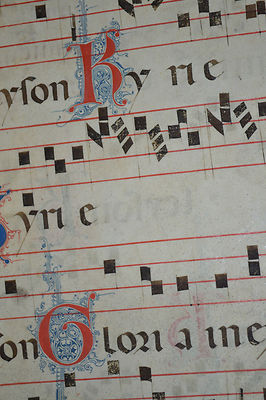 yson Ky rie
yrie
son Gloria in e